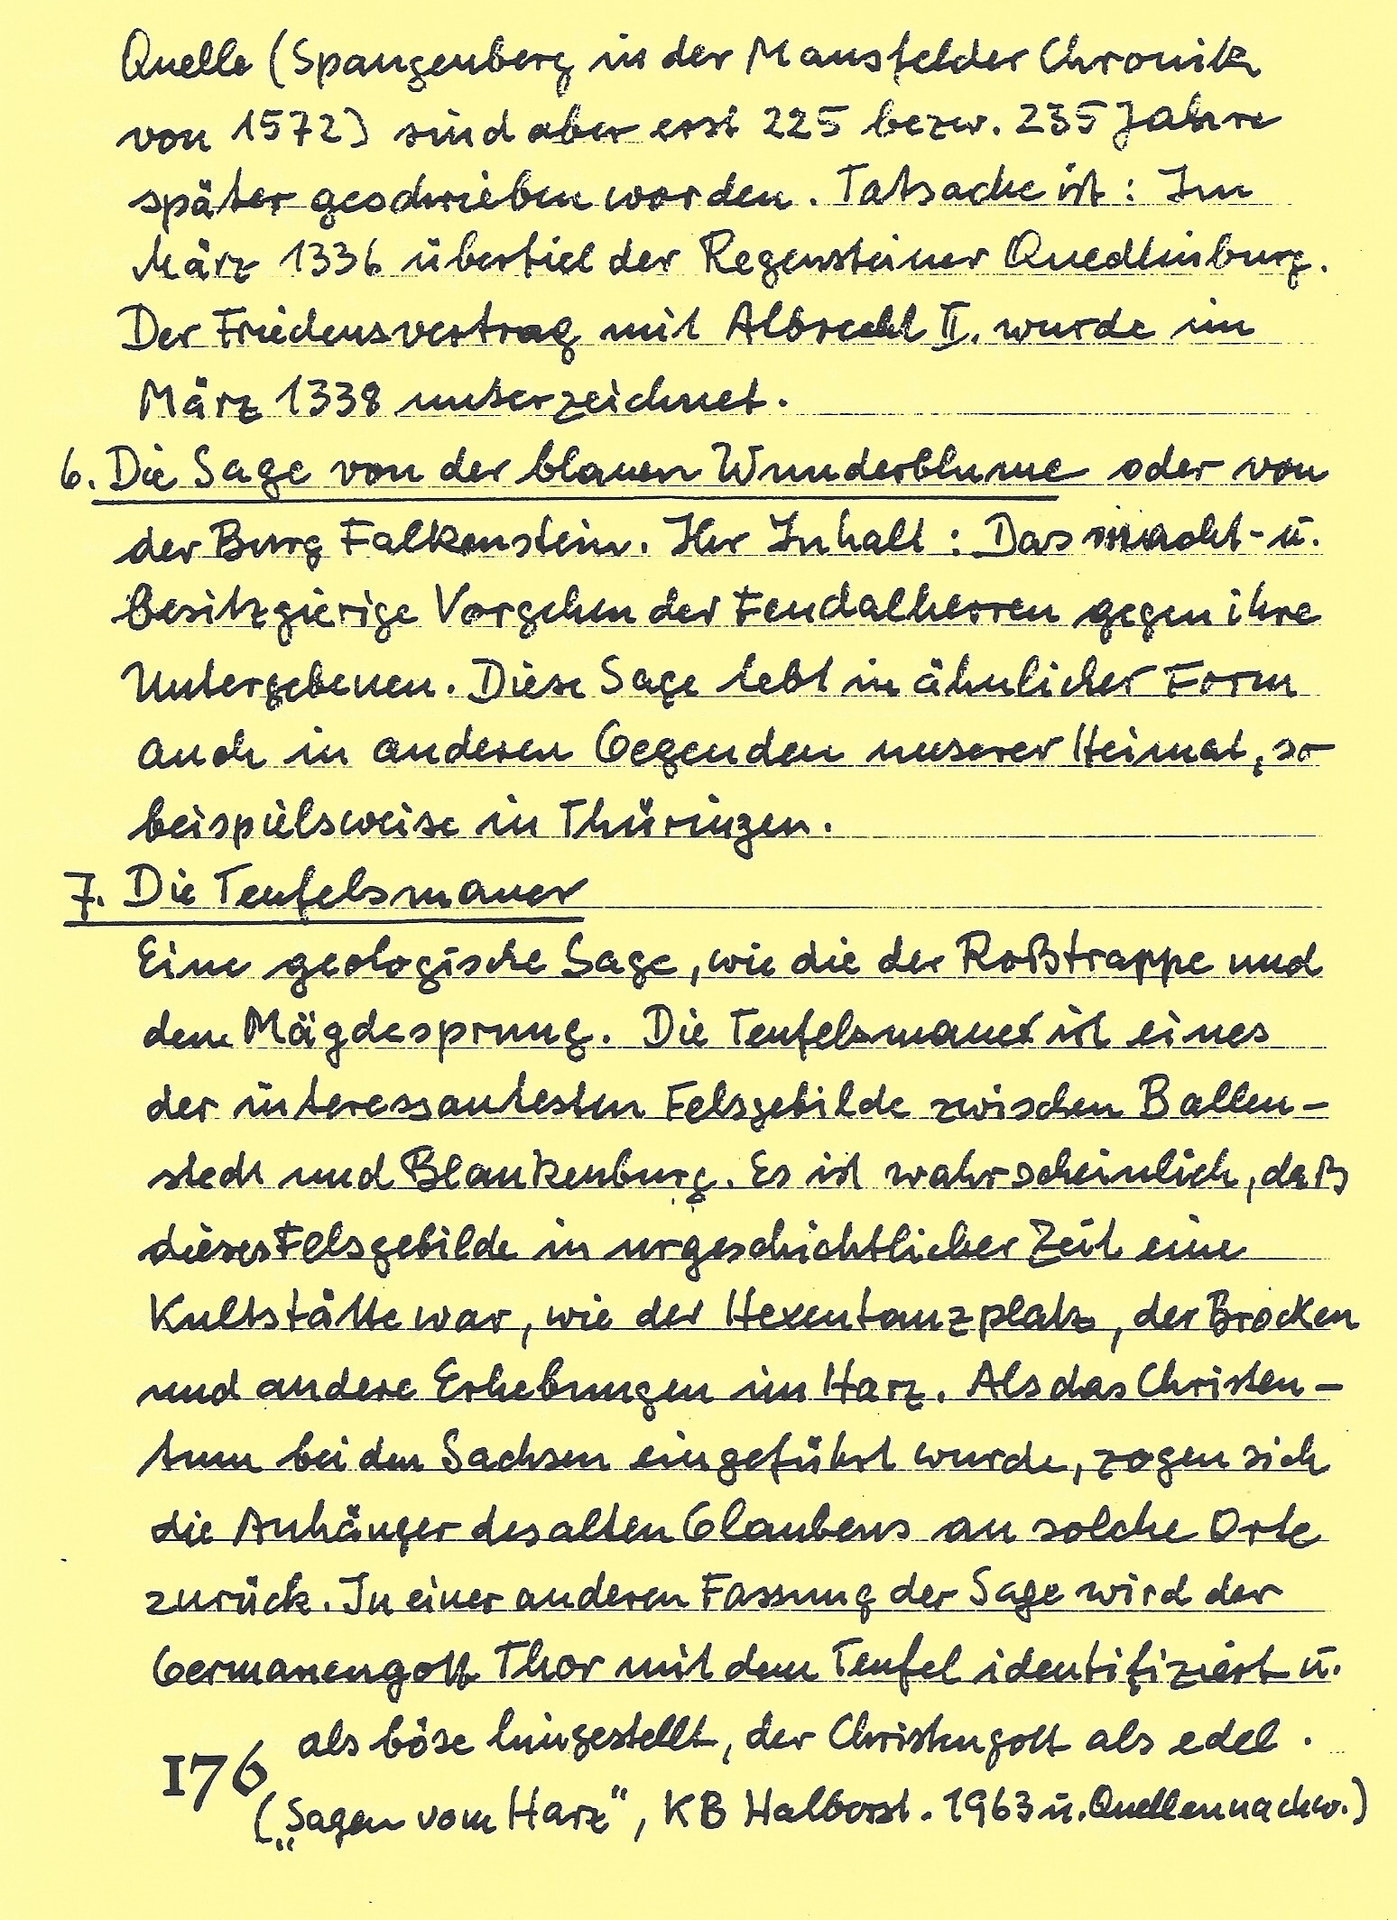 Quelle (Spangenberg in der Mansfelder Chronik
von 1572) sind aber erst 225 bezw. 235 Jahre
später geschrieben worden. Tatsache ist: Im
März 1336 überfiel der Regensteiner Quedlinburg.
Der Friedensvertrag mit Albrecht II. wurde im
März 1338 unterzeichnet.
6. Die Sage von der blauen Wunderblume oder von
der Burg Falkenstein. Ihr Inhalt: Das macht- u.
besitzgierige Vorgehen der Feudalherren gegen ihre
Untergebenen. Diese Sage lebt in ähnlicher Form
auch in anderen Gegenden unserer Heimat, so
beispielsweise in Thüringen.
7. Die Teufelsmauer
Eine geologische Sage, wie die der Roßtrappe und
dem Mägdesprung. Die Teufelsmauer ist eines
der interessantesten Felsgebilde zwischen Ballen-
stedt und Blankenburg. Es ist wahrscheinlich, daß
dieses Felsgebilde in urgeschichtlicher Zeit eine
Kultstätte war, wie der Hexentanzplatz, der Brocken
und andere Erhebungen im Harz. Als das Christen-
tum bei den Sachsen eingeführt wurde, zogen sich
die Anhänger des alten Glaubens an solche Orte
zurück. In einer anderen Fassung der Sage wird der
Germanengott Thor mit dem Teufel identifiziert u.
als böse hingestellt, der Christengott als edel.
176
(„Sagen vom Harz“, KB Halberst. 1963 u. Quellennachw.)